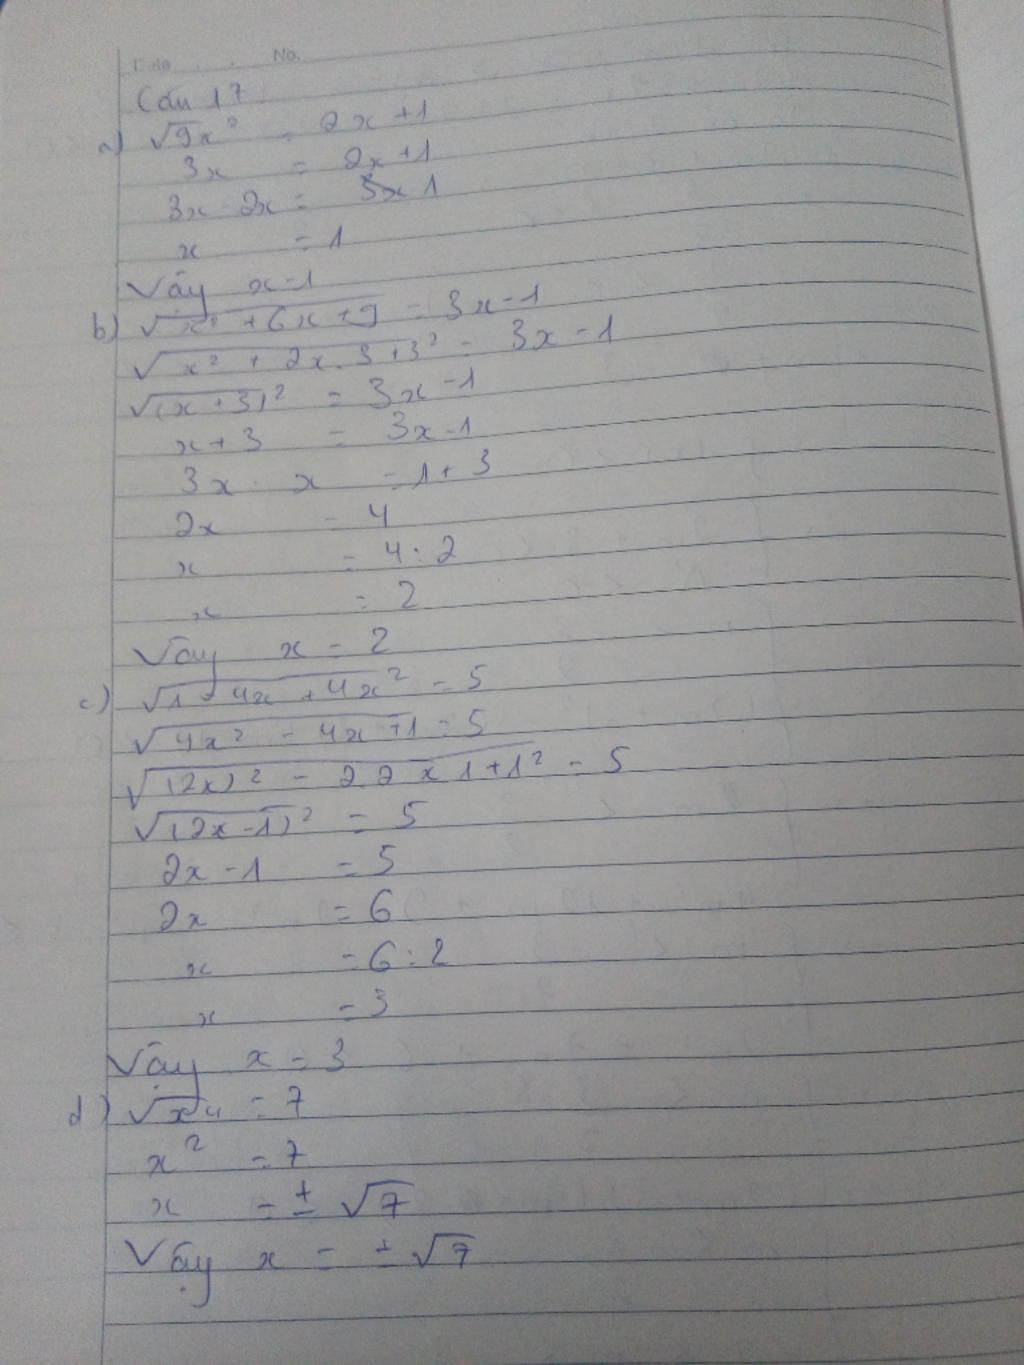 No.
Câu 17
a) √9x² = 2x+1
3x = 2x+1
3x - 2x = 1
x = 1
Vậy x=1
b) √x²+6x+9 = 3x-1
√x²+2x.3+3² = 3x-1
√(x+3)² = 3x-1
x+3 = 3x-1
3x - x = 1+3
2x = 4
x = 4:2
x = 2
Vậy x = 2
c) √1-4x+4x² = 5
√4x²-4x+1 = 5
√(2x)²-2.2x1+1² = 5
√(2x-1)² = 5
2x-1 = 5
2x = 6
x = 6:2
x = 3
Vậy x = 3
d) √x⁴ = 7
x² = 7
x = ±√7
Vậy x = ±√7